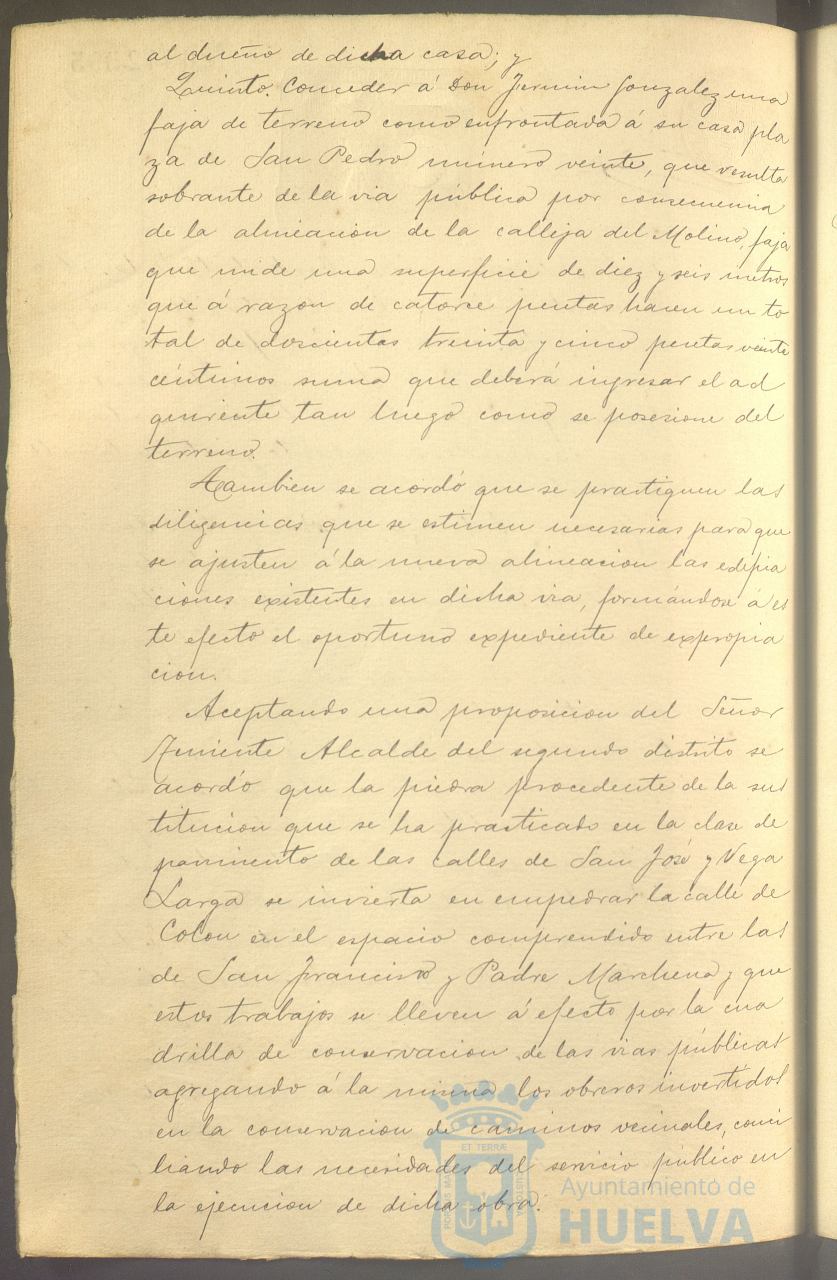 al dueño de dicha casa; y
Quinto. Conceder á Don Fermin Gonzalez una
faja de terreno como enfrontada á su casa pla
za de San Pedro número veinte, que resulta
sobrante de la via pública por consecuencia
de la alineacion de la calleja del Molino, faja
que mide una superficie de diez y seis metros
que á razon de catorce pesetas hacen un to
tal de doscientas treinta y cinco pesetas veinte
céntimos suma que deberá ingresar el ad
quirente tan luego como se posesione del
terreno.
Tambien se acordó que se practiquen las
diligencias que se estimen necesarias para que
se ajusten á la nueva alineacion las edifica
ciones existentes en dicha via, formándose á es
te efecto el oportuno expediente de expropia
cion.
Aceptando una proposicion del Señor
Teniente Alcalde del segundo distrito se
acordó que la piedra procedente de la sus
titucion que se ha practicado en la clase de
pavimento de las calles de San José y Vega
Larga se invierta en empedrar la calle de
Colon en el espacio comprendido entre las
de San Francisco y Padre Marchena y que
estos trabajos se lleven á efecto por la cua
drilla de conservacion de las vias públicas
agregando á la misma los obreros invertidos
en la conservacion de caminos vecinales, conci
liando las necesidades del servicio público en
la ejecucion de dicha obra.
ET TERRÆ
Ayuntamiento de
HUELVA